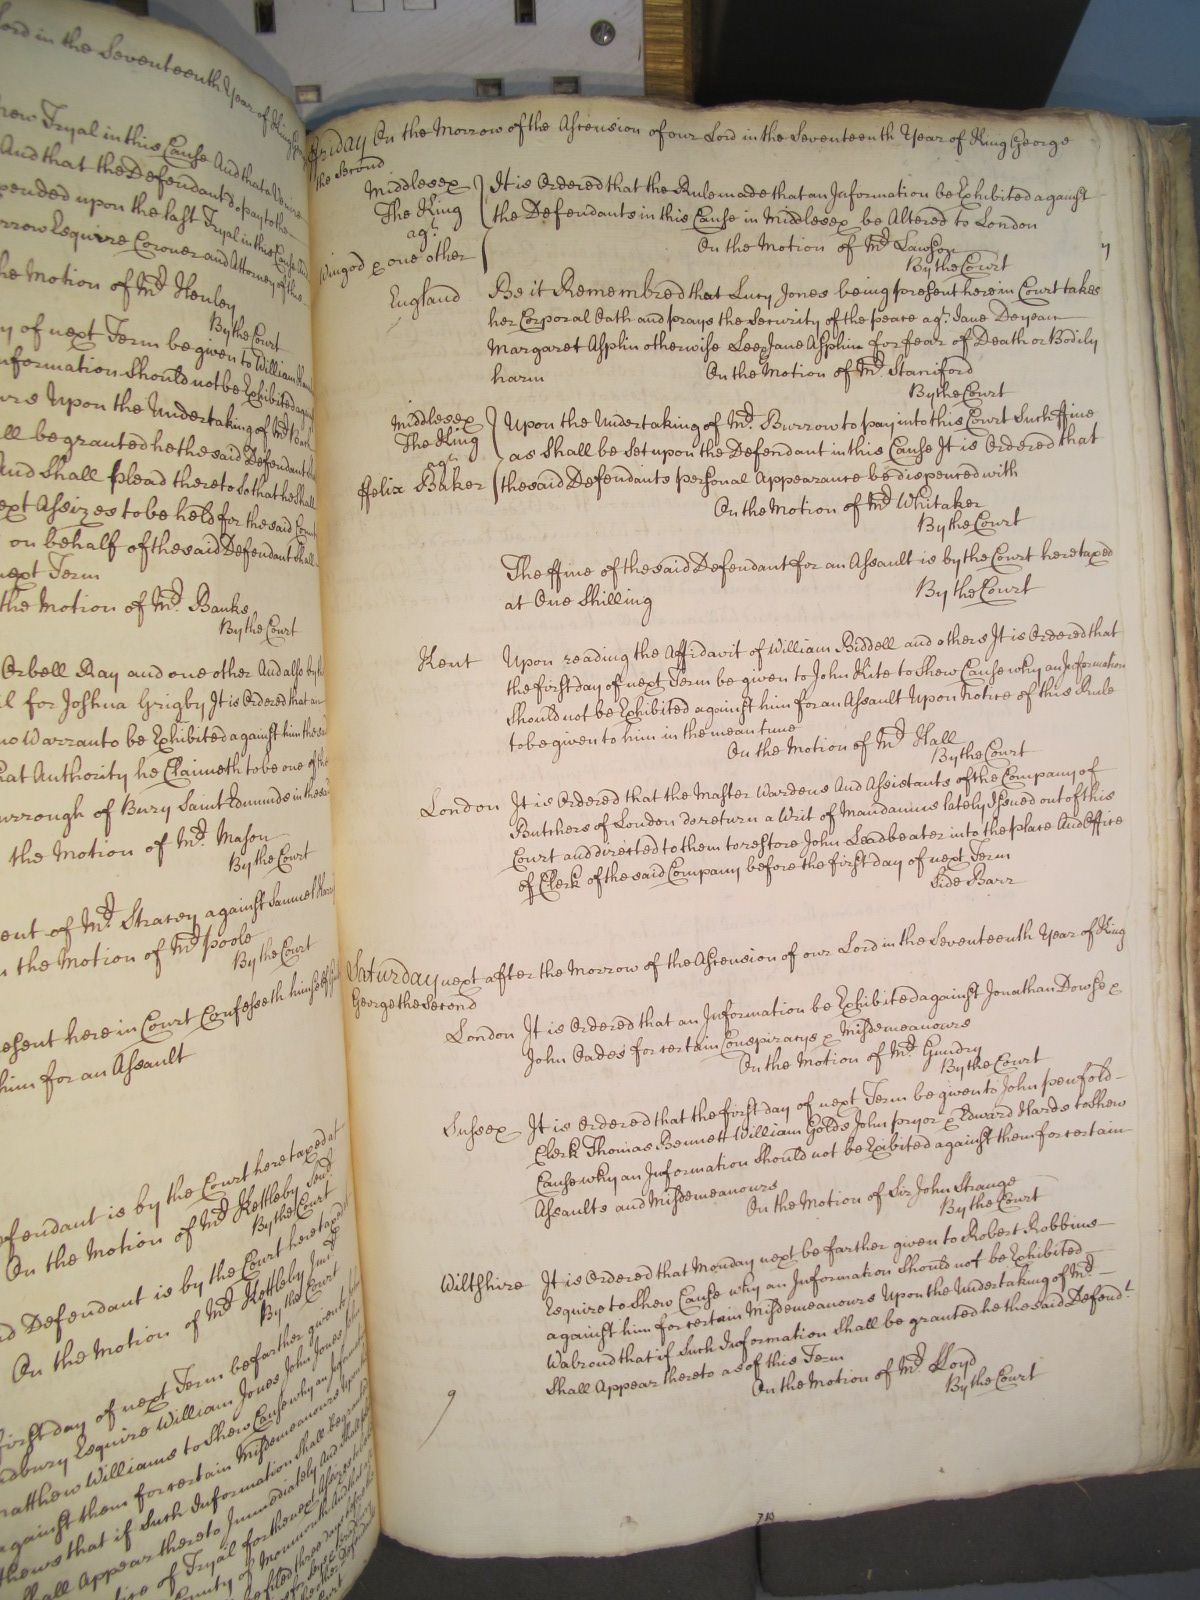 Lord in the Seventeenth Year of King
new Tryal in this Cause And that a Venire
And that the Defendants do pay to the
pended upon the last Tryal in this Cause
rrow Esquire Coroner and Attorney of this
the Motion of Mr. Henley
By the Court
y of next Term be given to William
nformation Should not be Exhibited against
urs Upon the Undertaking of Mr.
ll be granted he the said Defendant
And Shall plead thereto So that he Shall
ext Assizes to be held for the said
on behalf of the said Defendant Shall
next Term
the Motion of Mr. Banks
By the Court
Orbell Ray and one other And also
il for Joshua Grigby It is Ordered that an
uo Warranto be Exhibited against him
hat Authority he Claimeth to be one of the
urrough of Bury Saint Edmunds in the
the Motion of Mr. Mason
By the Court
ent of Mr. Stracey against Samuel
n the Motion of Mr. Poole
By the Court
resent here in Court Confesseth himself
him for an Assault
efendant is by the Court here taxed at
On the Motion of Mr. Kettleby Senr.
By the Court
d Defendant is by the Court here taxed
On the Motion of Mr. Kettleby Junr.
By the Court
first day of next Term be farther given to
dbury Esquire William Jones John Jones
Matthew Williams to Shew Cause why an Information
against them for certain Misdemeanours Upon
thews that if Such Information Shall be granted
Shall Appear thereto Immediately And Shall
ice of Tryal for the next Assizes
County of Monmouth And that
Friday On the Morrow of the Ascension of our Lord in the Seventeenth Year of King George
the Second
Middlesex It is Ordered that the Rule made that an Information be Exhibited against
The King the Defendants in this Cause in Middlesex be Altered to London
agt. On the Motion of Mr. Lawson
Wingod & one other By the Court
England Be it Remembred that Lucy Jones being present here in Court takes
her Corporal Oath and prays the Security of the peace agt. Jane Deyean
Margaret Asplin otherwise Lee & Jane Asplin for fear of Death or Bodily
harm On the Motion of Mr. Staniford
By the Court
Middlesex Upon the Undertaking of Mr. Burrow to pay into this Court Such ffine
The King as Shall be Set upon the Defendant in this Cause It is Ordered that
agt.
ffelix Baker the said Defendants personal Appearance be dispenced with
On the Motion of Mr. Whitaker
By the Court
The ffine of the said Defendant for an Assault is by the Court here taxed
at One Shilling By the Court
Kent Upon reading the Affidavit of William Biddell and others It is Ordered that
the first day of next Term be given to John Kite to Shew Cause why an Information
Should not be Exhibited against him for an Assault Upon Notice of this Rule
to be given to him in the mean time
On the Motion of Mr. Hall
By the Court
London It is Ordered that the Master Wardens And Assistants of the Company of
Butchers of London do return a Writ of Mandamus lately Issued out of this
Court and directed to them to restore John Leadbeater into the place And Office
of Clerk of the said Company before the first day of next Term
Side Barr
Saturday next after the Morrow of the Ascension of our Lord in the Seventeenth Year of King
George the Second
London It is Ordered that an Information be Exhibited against Jonathan Dowse &
John Oades for certain Conspiracys & Misdemeanours
On the Motion of Mr. Gundry
By the Court
Sussex It is Ordered that the first day of next Term be given to John penfold
Clerk Thomas Bennett William Golds John pryor & Edward Hards to Shew
Cause why an Information Should not be Exibited against them for certain
Assaults and Misdemeanours
On the Motion of Sir John Strange
By the Court
Wiltshire It is Ordered that Monday next be farther given to Robert Robbins
Esquire to Shew Cause why an Information Should not be Exhibited
against him for certain Misdemeanours Upon the Undertaking of Mr.
Walrond that if Such Information Shall be granted he the said Defendt.
Shall Appear thereto as of this Term
On the Motion of Mr. Lloyd
By the Court